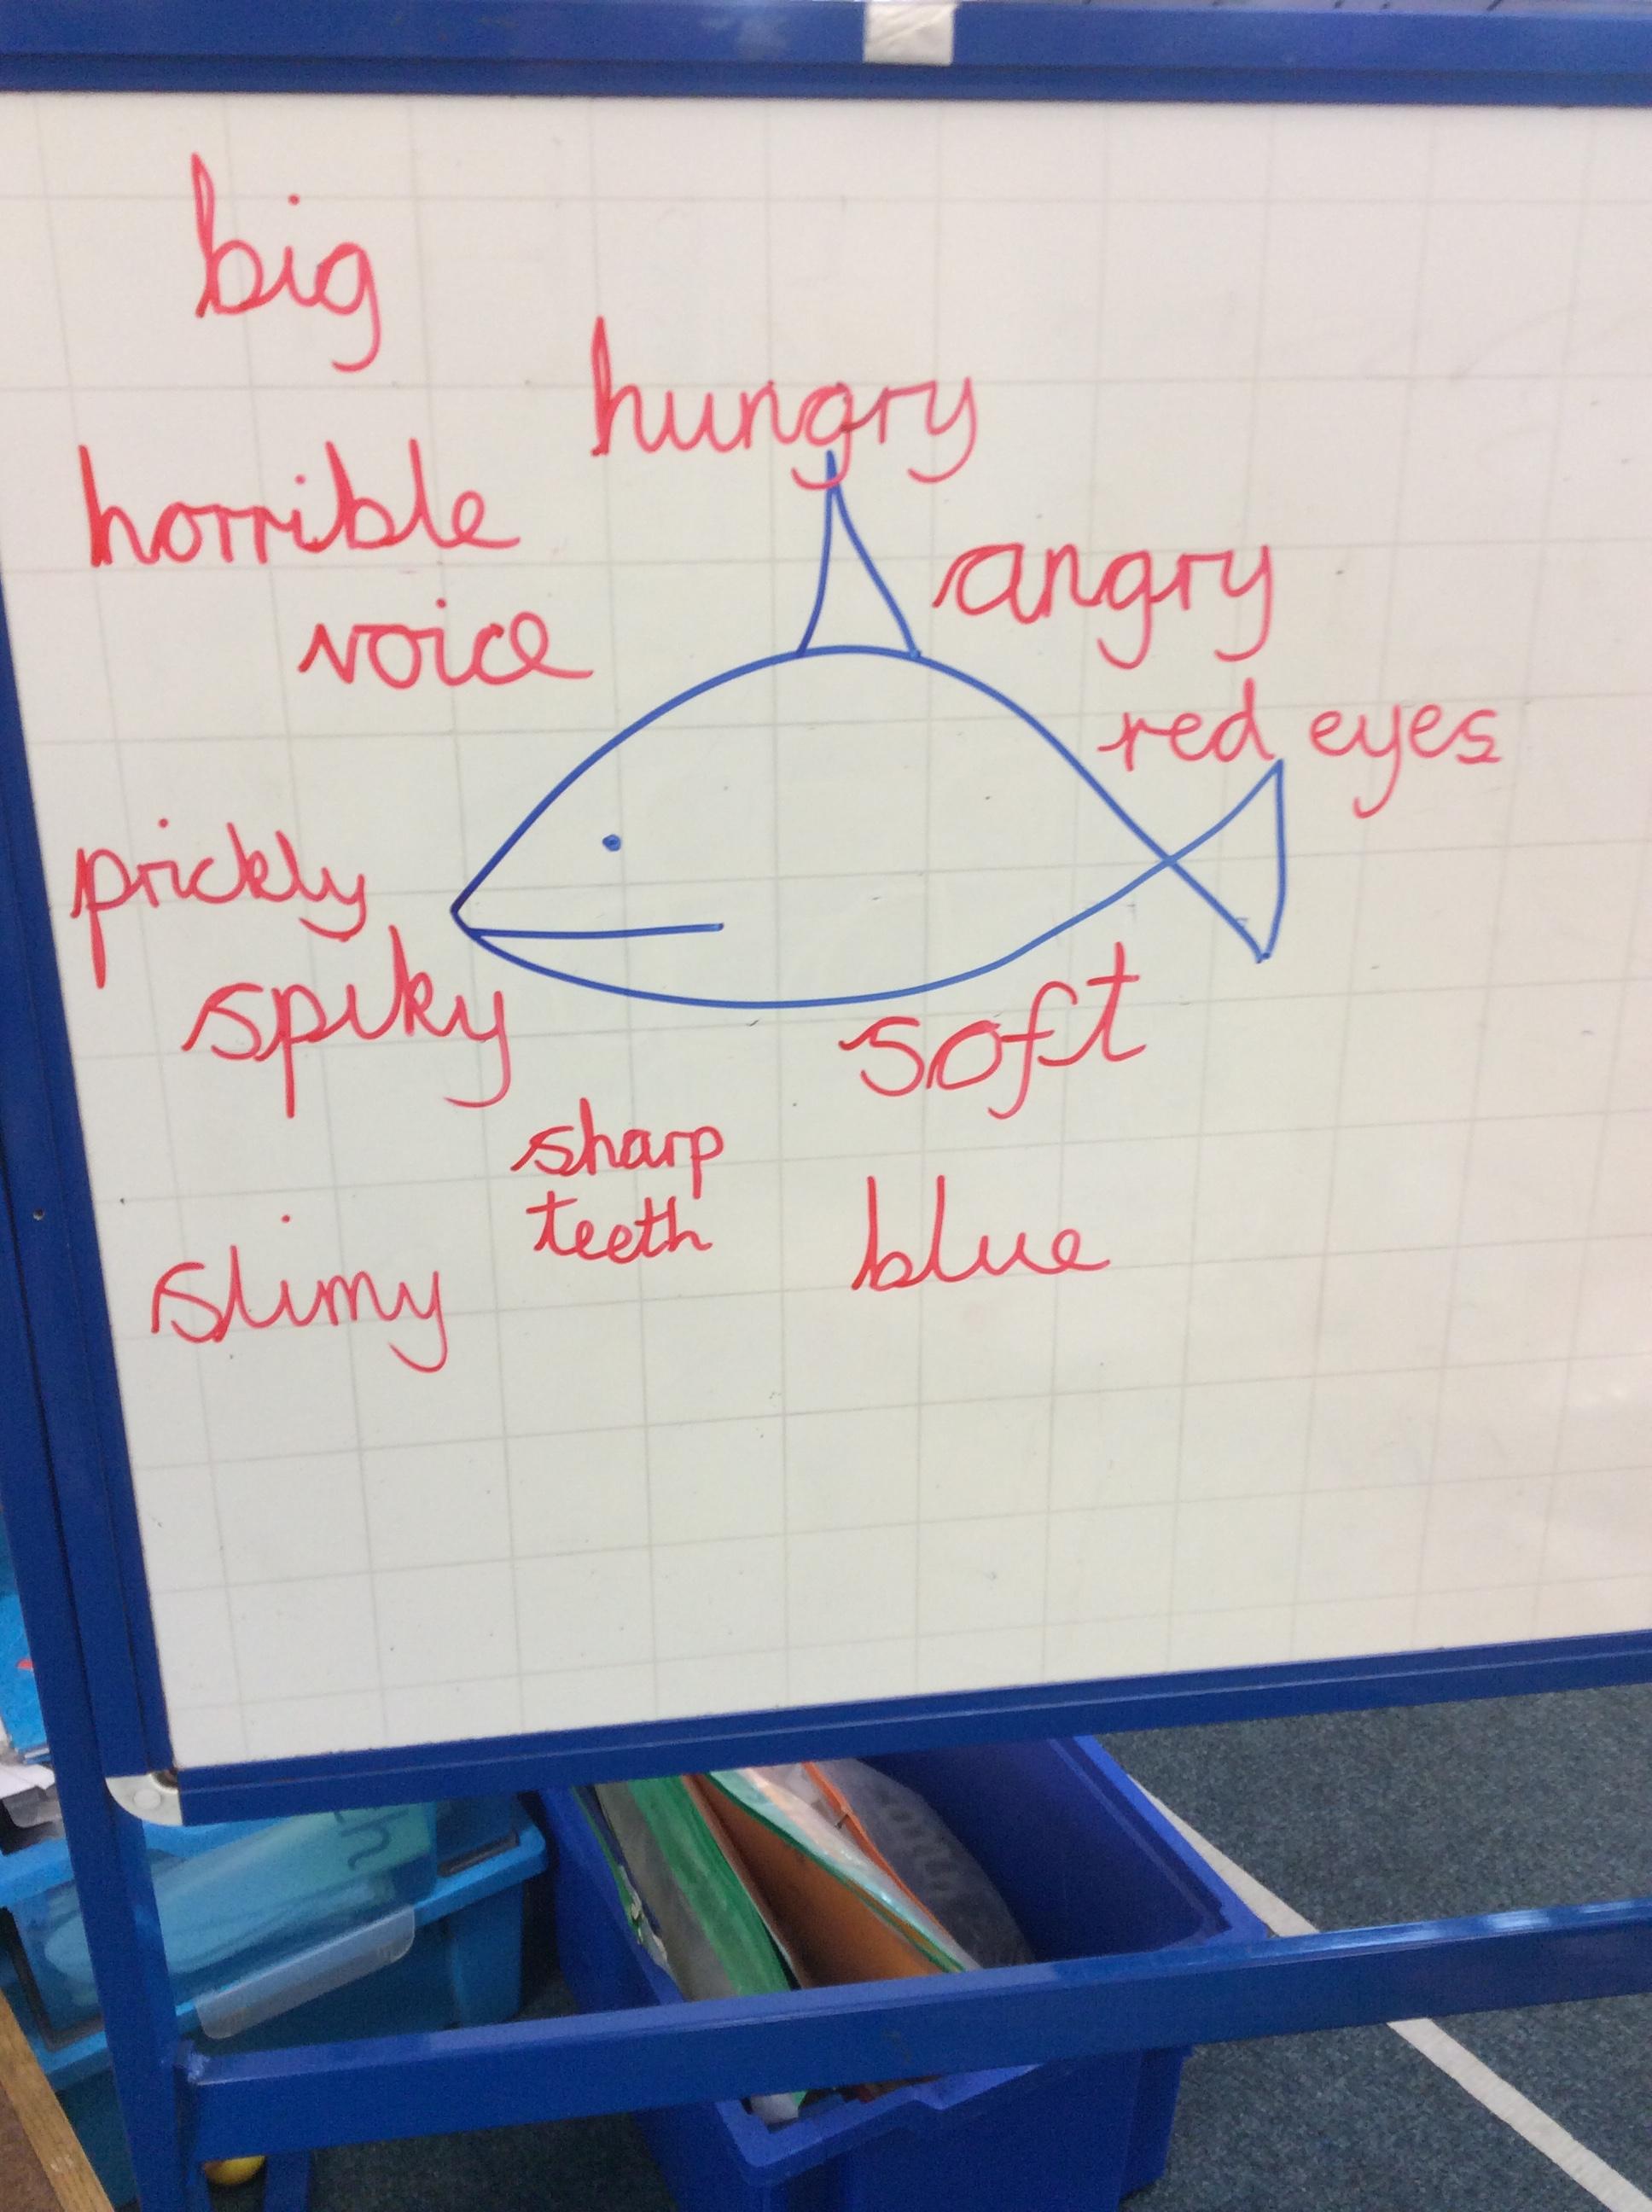 big
hungry
horrible
voice
angry
red eyes
prickly
spiky
soft
sharp
teeth
blue
slimy